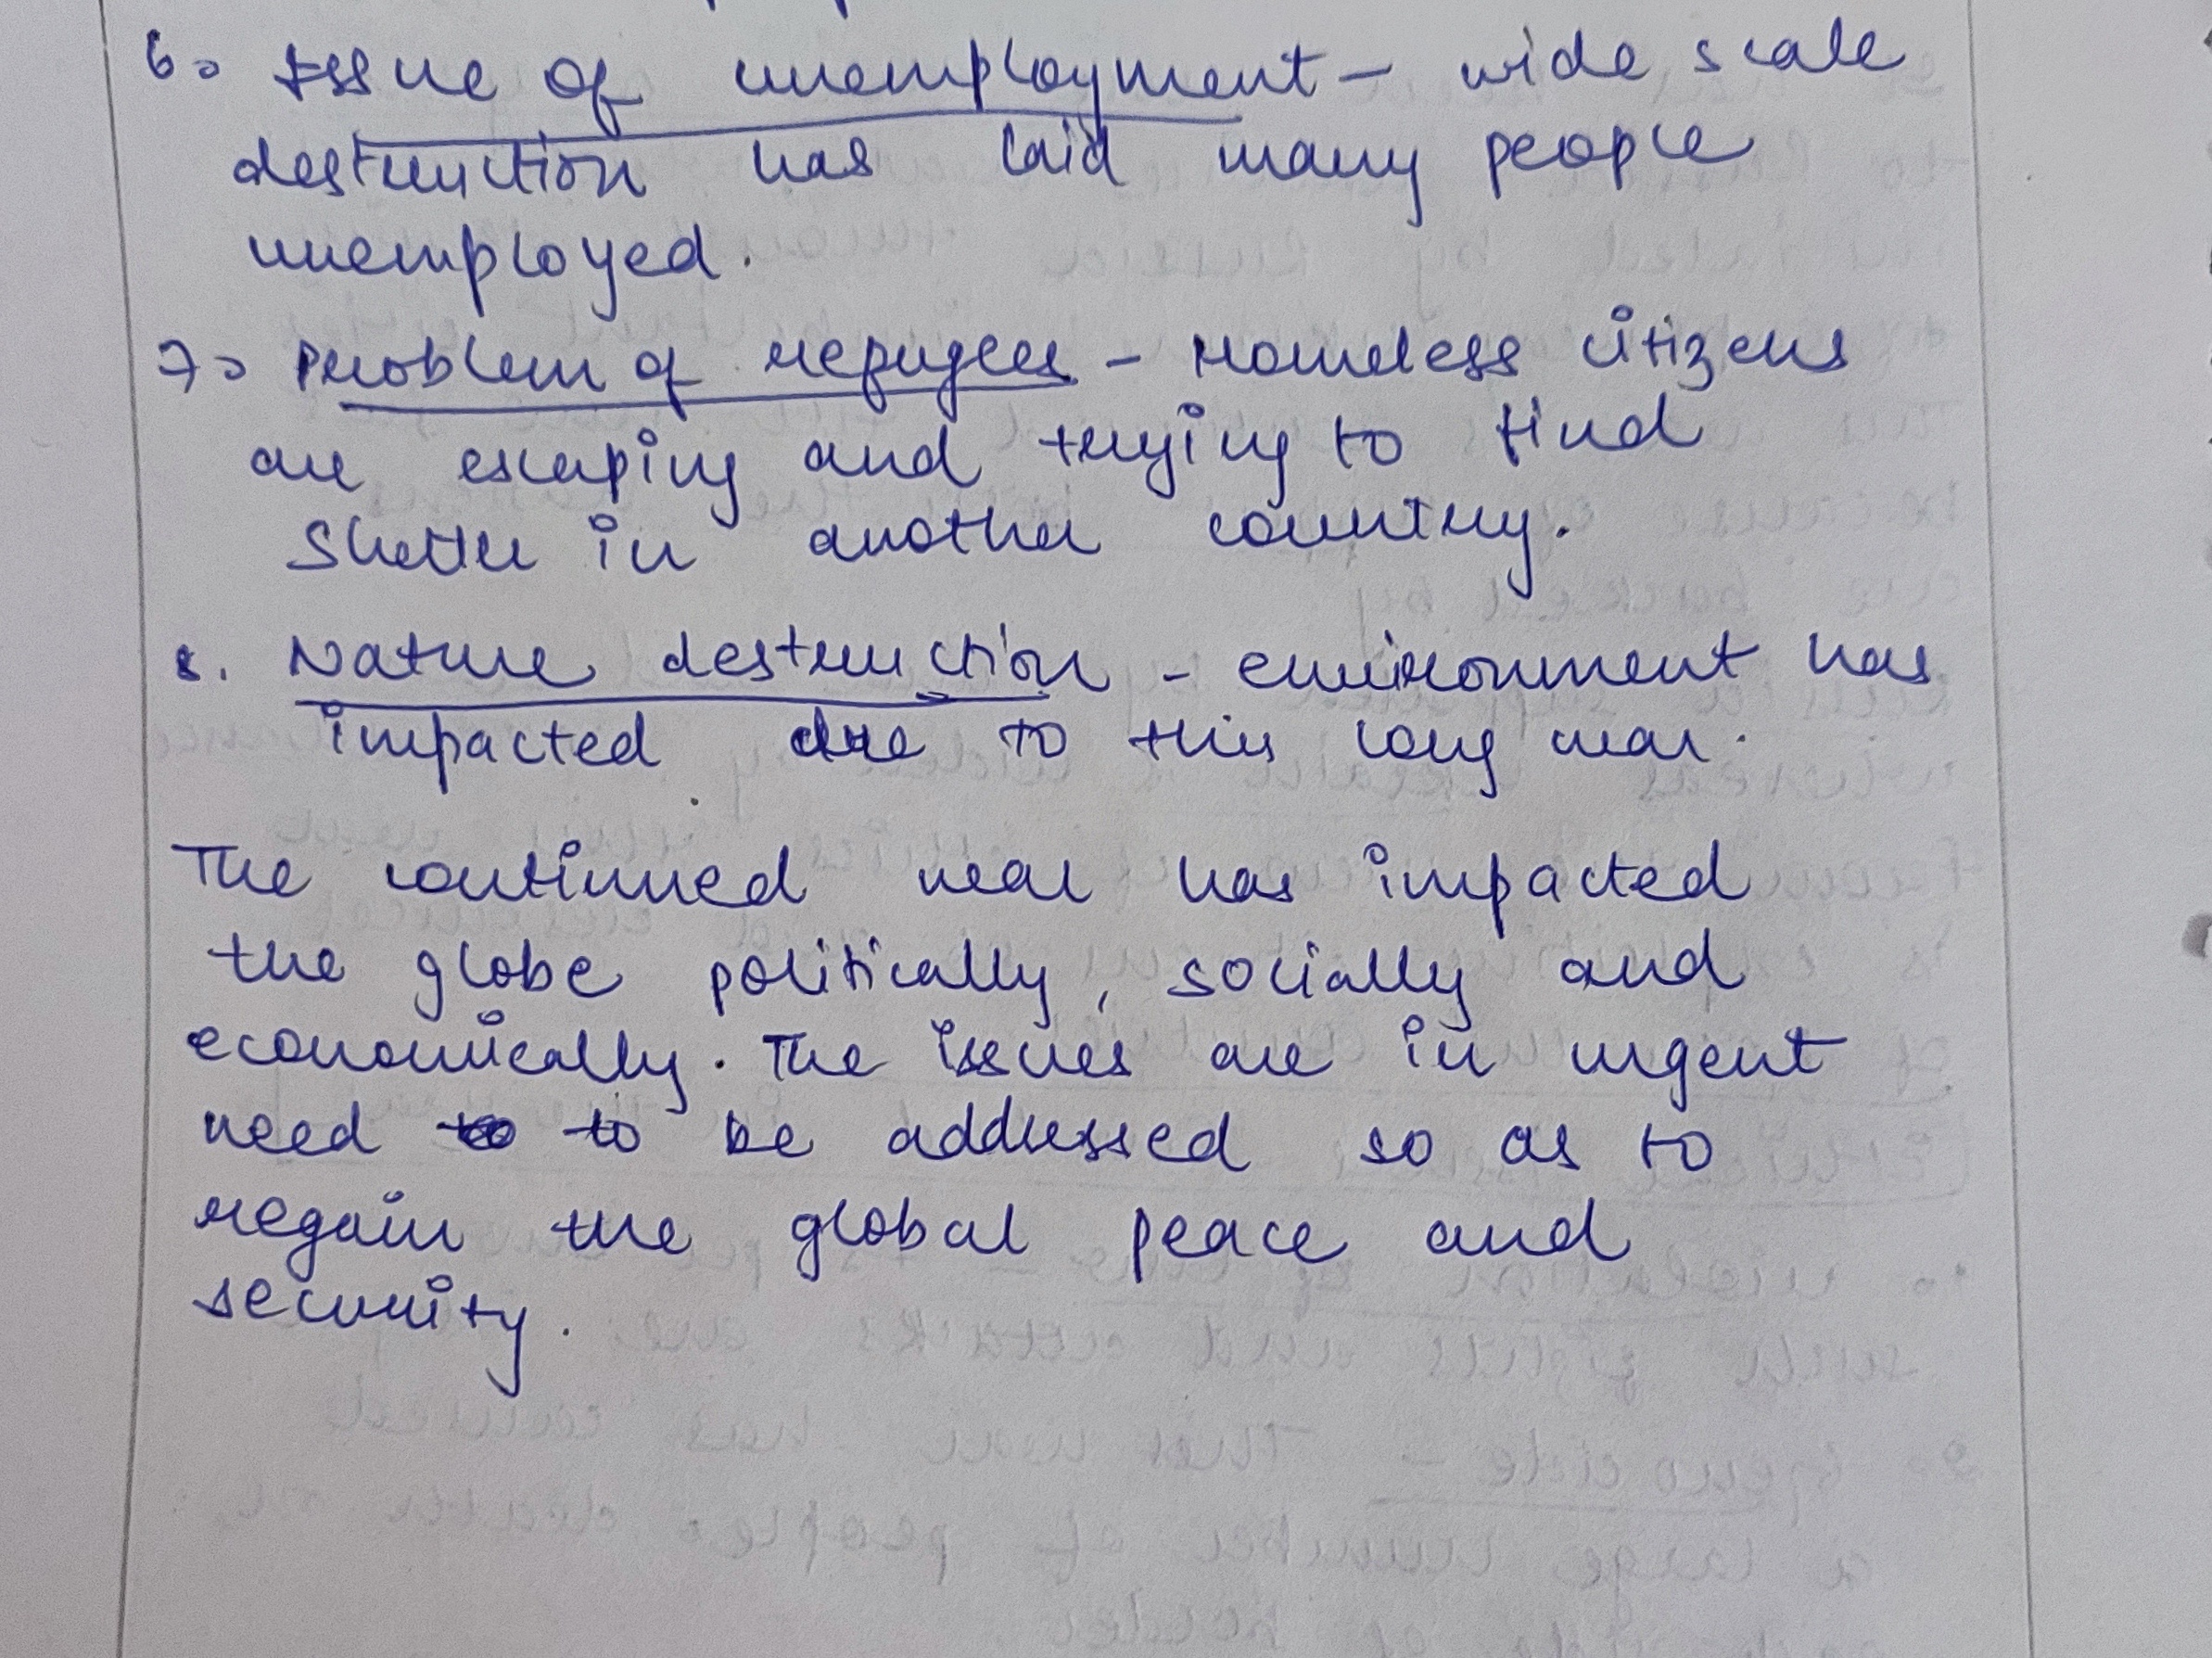 6. Issue of unemployment - wide scale
destruction has laid many people
unemployed.
7. Problem of refugees - Homeless citizens
are escaping and trying to find
shelter in another country.
8. Nature destruction - environment has
impacted due to this long war.
The continued war has impacted
the globe politically, socially and
economically. The issues are in urgent
need to be addressed so as to
regain the global peace and
security.